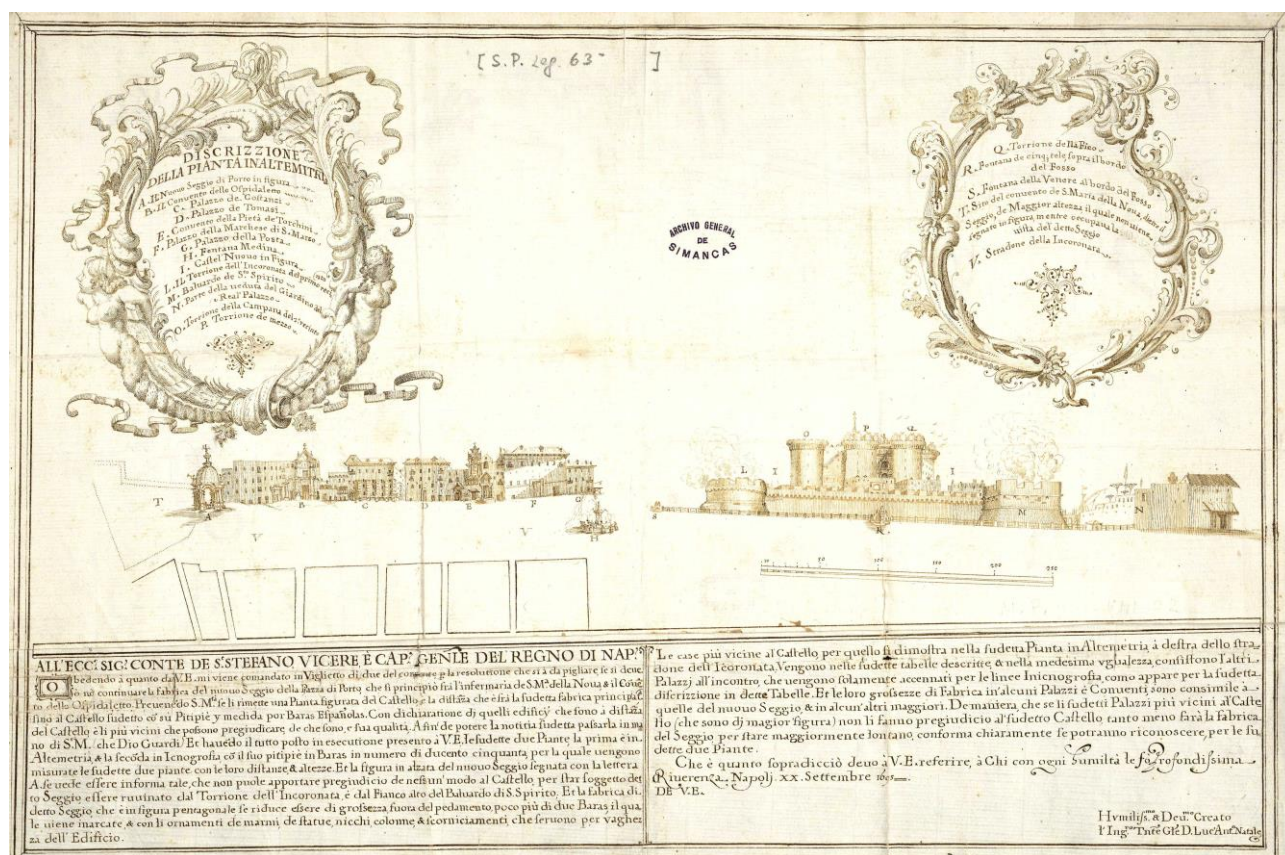 [S.P. Leg. 63-]
DISCRIZZIONE
DELLA PIANTA IN ALTEMITRIA
A. IL Nuouo Seggio di Porto in figura
B. IL Conuento dello Ospidaletto
C. Palazzo de Costanzi
D. Palazzo de Tomasi
E. Conuento della Pietà de Torchini
F. Palazzo della Marchese di S. Marzo
G. Palazzo della Posta
H. Fontana Medina
I. Castel Nuouo in Figura
L. IL Torrione dell'Incoronata del primo
M. Baluardo de S.to Spirito
N. Parte della ueduta del Giardino del
Real Palazzo
O. Torrione della Campana del
P. Torrione de mezzo
Q. Torrione della
R. Fontana de cinq; tele, sopra il bordo
del Fosso
S. Fontana della Venere al bordo del Fosso
T. Sito del conuento de S. Maria della Noua, dietro il
Seggio, de Maggior altezza il quale non uiene
segnato in figura, mentre occupaua la
uista del detto Seggio
V. Stradone della Incoronata
ARCHIVO GENERAL
DE
SIMANCAS
T A B C D E F G
V V H
L I O P Q I M N
K
50 100 200 250
ALL'ECC.mo SIG.r CONTE DE S. STEFANO VICERE, È CAP.o GEN.LE DEL REGNO DI NAP.
Obedendo à quanto da V.E. mi viene comandato in Viglietto di due del corrente p la resolutione che si à da pigliare se si deue,
ò nò continuare la fabrica del nuouo Seggio della Piazza di Porto, che si principiò frà l'infermaria de S. M.a della Noua, & il Conue
to dello Ospidaletto. Preuenendo S. M. se li rimette una Pianta figurata del Castello, e la distaza che è frà la sudetta fabrica principiata,
sino al Castello sudetto có sú Pitipiè y medida por Baras Españolas. Con dichiaratione dj quelli edificÿ che sono à distaza
del Castello è li più vicini che possono pregiudicare, de che sono, e sua qualità. A fin de potere la notitia sudetta passarla in ma
no di S.M. (che Dio Guardi) Et hauedo il tutto posto in esecutione presento à V.E. le sudette due Piante, la prima è in
Altemetria, & la secóda in Icnografia có il suo pitipiè in Baras in numero di ducento cinquanta, per la quale uengono
misurate le sudette due piante con le loro distanze, & altezze. Et la figura in alzata del nuouo Seggio segnata con la lettera
A. se uede essere informa tale, che non puole apportare pregiudicio de nessun' modo al Castello, per star soggetto det
to Seggio essere ruuinato dal Torrione dell'Incoronata, è dal Fianco alto del Baluardo di S. Spirito, Et la fabrica di
detto Seggio che è in figura pentagonale se riduce essere di grossezza, fuora del pedamento, poco più di due Baras il qua
le uiene marcate, & con li ornamenti de marmi, de statue, nicchi, colonne, & scorniciamenti, che seruono per vaghez
za dell'Edificio.
Le case più vicine al Castello per quello si dimostra nella sudetta Pianta in Altemetria, à destra dello stra
done dell'Icoronata, Vengono nelle sudette tabelle descritte, & nella medesima vgualezza consistono l'altri
Palazzj all'incontro, che uengono solamente accennati per le linee Inicnografia, como appare per la sudetta
discrizione in dette Tabelle. Et le loro grossezze di Fabrica in alcuni Palazzi è Conuenti, sono consimile à
quelle del nuouo Seggio, & in alcun'altri maggiori. De maniera, che se li sudetti Palazzi più vicini al Caste
llo (che sono dj magior figura) non li fanno pregiudicio al sudetto Castello, tanto meno farà la fabrica,
del Seggio per stare maggiormente lontano, conforma chiaramente se potranno riconoscere, per le su
dette due Piante.
Che è quanto sopradicciò deuo à V.E. referire, à Chi con ogni Sumiltà le fo Profondissima
Riuerenza. Napolj. XX. Settembre
DE V.E.
Hvmiliss.mo & Deu.mo Creato
l'Ing.ro Tnte Gle D. Luc'Ant. Natale